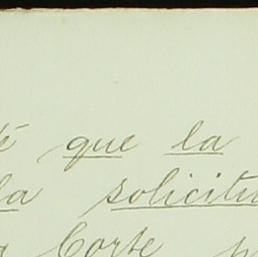 que la
la solicitu
Corte